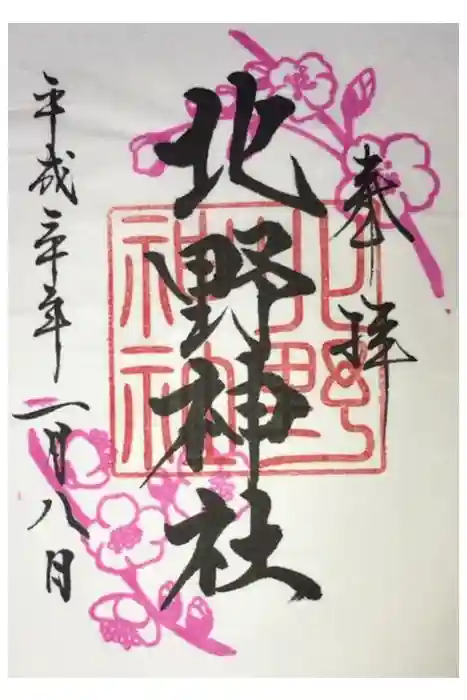 奉拝
北野神社
平成三十年二月八日
北野
神社